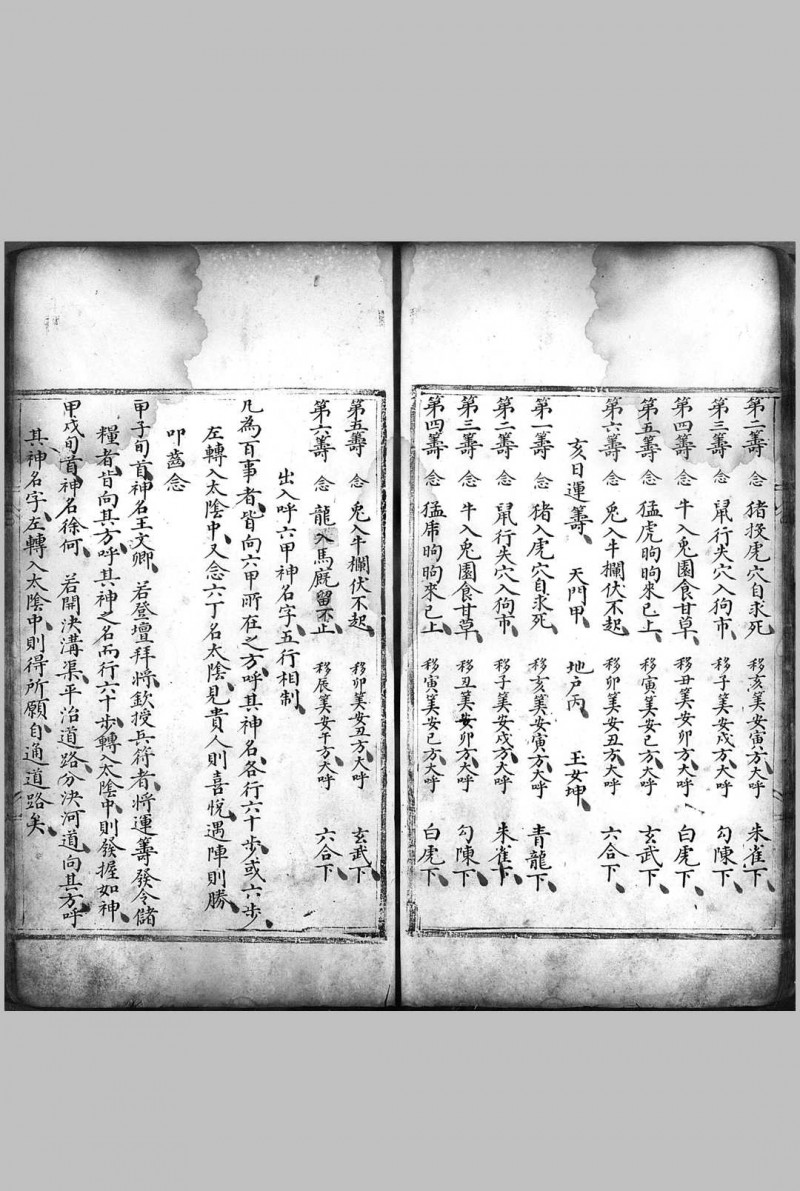 第二籌 念 猪投虎穴自求死 移亥筭安寅方大呼 朱雀下
第三籌 念 鼠行失穴入狗市 移子筭安戌方大呼 勾陳下
第四籌 念 牛入兔園食甘草 移丑筭安卯方大呼 白虎下
第五籌 念 猛虎呴呴來已上 移寅筭安巳方大呼 玄武下
第六籌 念 兔入牛欄伏不起 移卯筭安丑方大呼 六合下
亥日運籌 天門甲 地户丙 玉女坤
第一籌 念 猪入虎穴自求死 移亥筭安寅方大呼 青龍下
第二籌 念 鼠行失穴入狗市 移子筭安戌方大呼 朱雀下
第三籌 念 牛入兔園食甘草 移丑筭安卯方大呼 勾陳下
第四籌 念 猛虎呴呴來已上 移寅筭安巳方大呼 白虎下
第五籌 念 兔入牛欄伏不起 移卯筭安丑方大呼 玄武下
第六籌 念 龍入馬廐留不止 移辰筭安午方大呼 六合下
出入呼六甲神名字五行相制
凡為百事者皆向六甲所在之方呼其神名各行六十歩或六歩
左轉入太陰中又念六丁名太陰見貴人則喜悅遇陣則勝
叩齒念
甲子旬首神名王文卿 若登壇拜將欽授兵符者將運籌發令儲
糧者皆向其方呼其神之名而行六十歩轉入太陰中則發握如神
甲戌旬首神名徐何 若開決溝渠平治道路分決河道向其方呼
其神名字左轉入太陰中則得所願自通道路矣